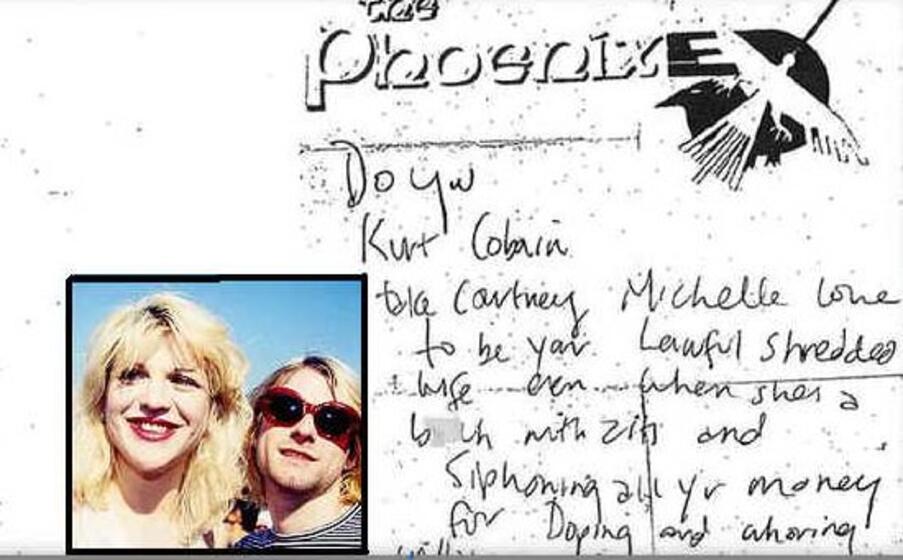 the
Phoenix
Do you
Kurt Cobain
take Courtney Michelle Love
to be your Lawful shredded
wife even when shes a
b  ch with zits and
siphoning all yr money
for Doping and whoring